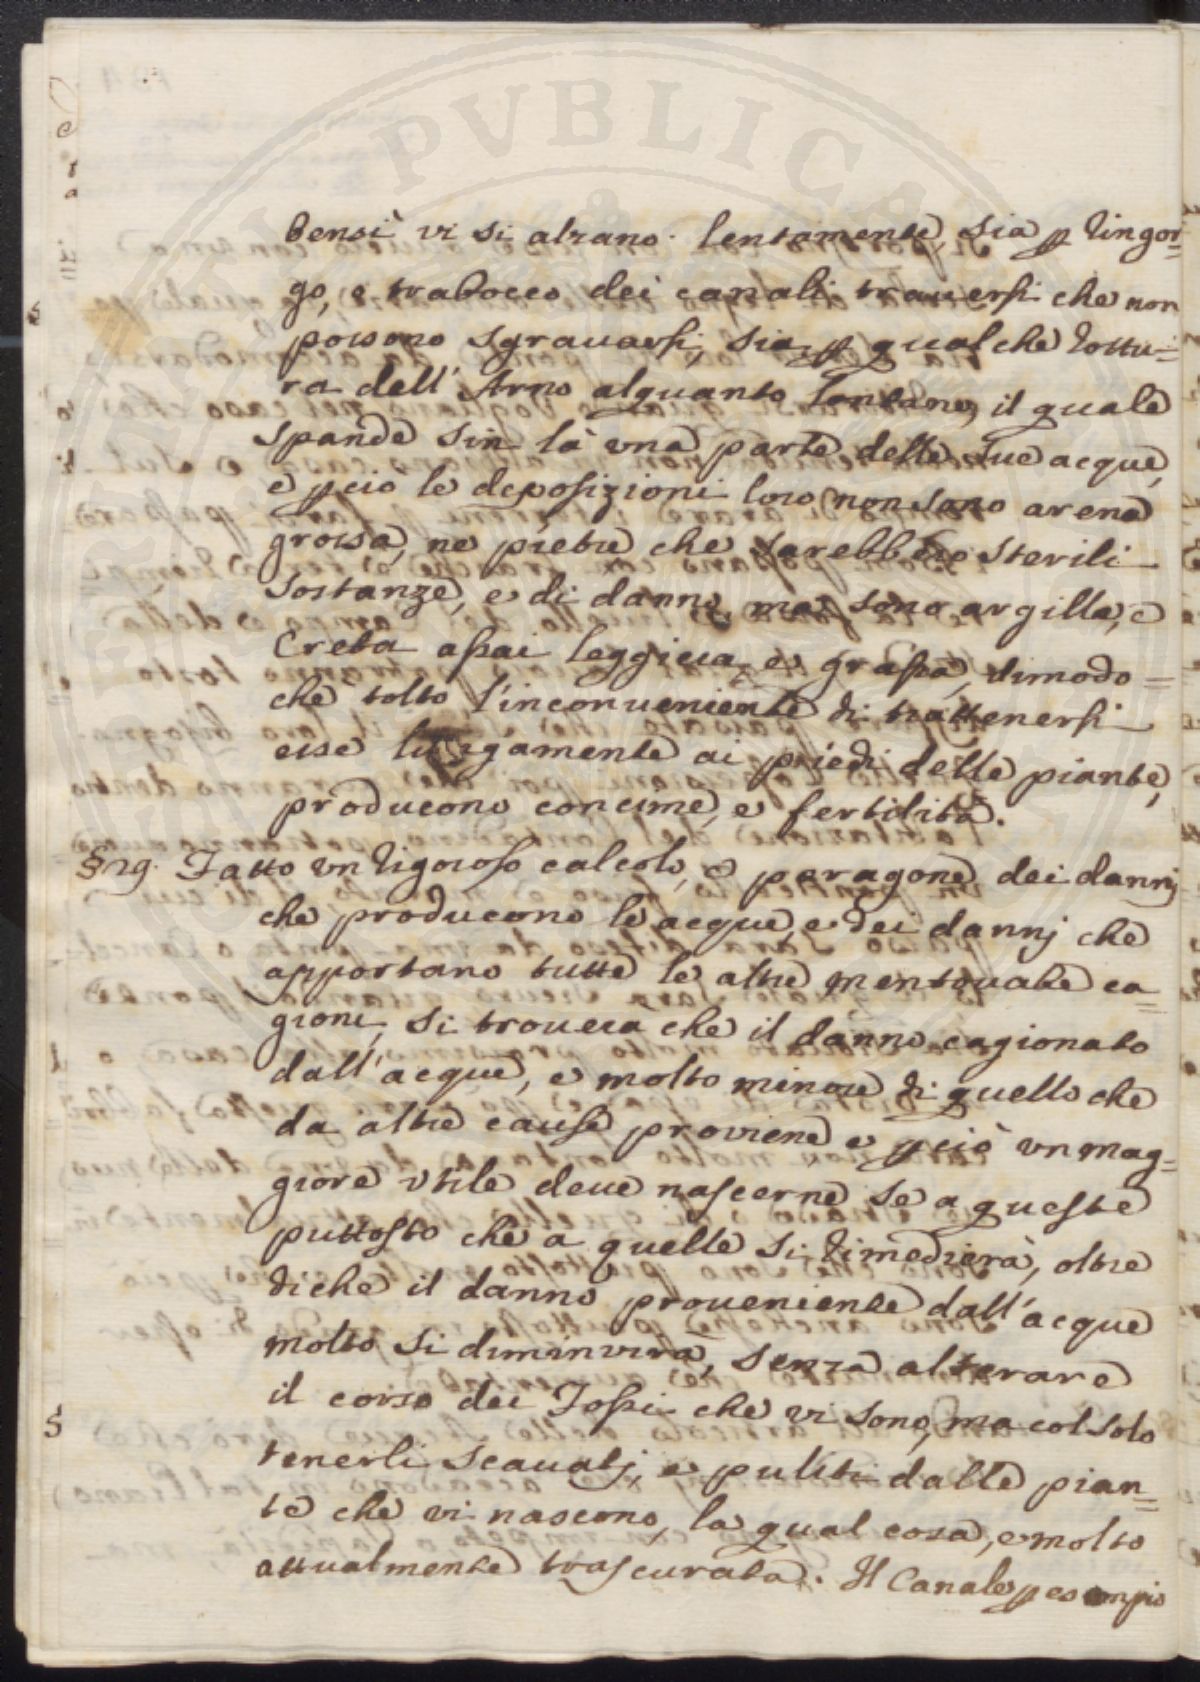 bensi vi si alzano lentamente, sia p ringor=
go, e trabocco dei canali traversi che non
possono sgravarsi, sia p qualche rottu=
ra dell' Arno alquanto lontano, il quale
spande sin là una parte delle sue acque,
e pciò le deposizioni loro non sono arena
grossa, ne pietre che sarebbero sterili
sostanze, e di danno, ma sono argilla, e
Creta assai leggiera, e grassa, dimodo=
che tolto l'inconveniente di trattenersi
esse lungamente ai piedi delle piante,
producono concime, e fertilità.
§29. Fatto un rigoroso calcolo, e paragone dei dannj
che producono le acque, e dei dannj che
apportano tutte le altre mentovate ca=
gioni, si trovera che il danno cagionato
dall'acque, e molto minore di quello che
da altre cause proviene e pciò un mag=
giore utile deve nascerne se a queste
puttosto che a quelle si rimedierà, oltre
diche il danno proveniente dall'acque
molto si diminuirà, senza alterare
il corso dei Fossi che vi sono, ma col solo
tenerli scavatj, e puliti dalle pian=
te che vi nascono, la qual cosa, e molto
attualmente trascurata. Il Canale p esempio
PVBLICA